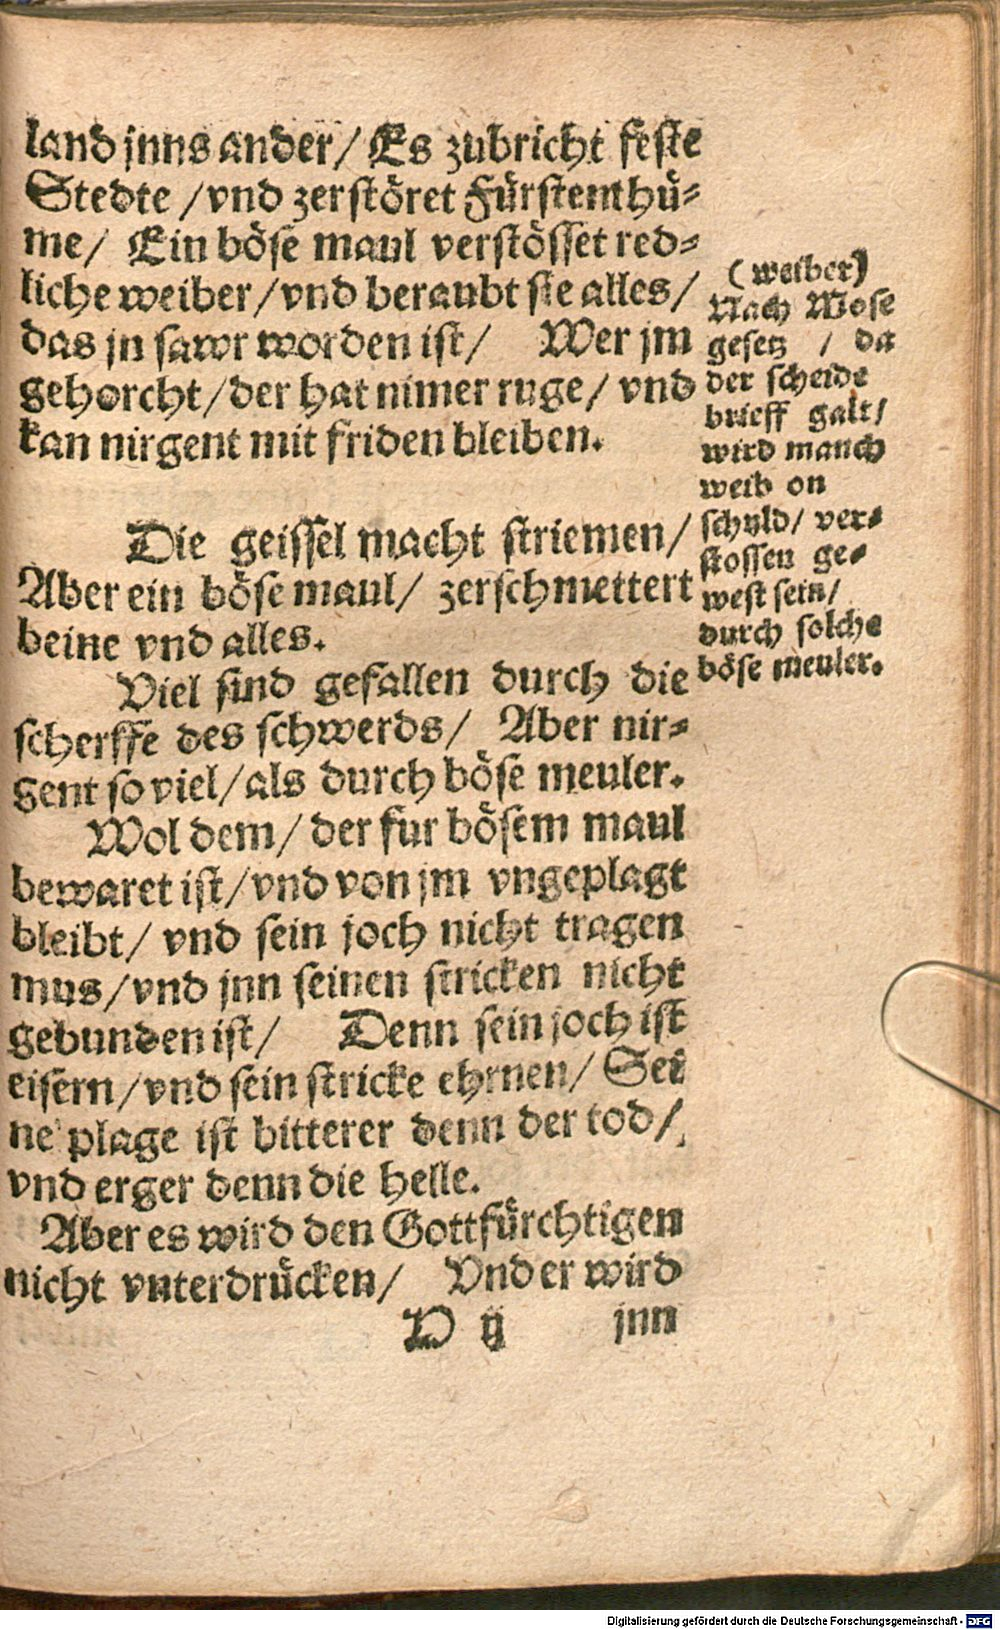 land jnns ander/ Es zubricht feste
Stedte /vnd zerstöret Fürstenthü-
me/ Ein böse maul verstösset red-
liche weiber/vnd beraubt sie alles/
das jn sawr worden ist/ Wer jm
gehorcht/der hat nimer ruge/ vnd
kan nirgent mit friden bleiben.
Die geissel macht striemen/
Aber ein böse maul/ zerschmettert
beine vnd alles.
Viel sind gefallen durch die
scherffe des schwerds/ Aber nir-
gent so viel/als durch böse meuler.
Wol dem/ der fur bösem maul
bewaret ist/vnd von jm vngeplagt
bleibt/ vnd sein joch nicht tragen
mus/vnd jnn seinen stricken nicht
gebunden ist/ Denn sein joch ist
eisern/vnd sein stricke ehrnen/ Sei
ne plage ist bitterer denn der tod/
vnd erger denn die helle.
Aber es wird den Gottfürchtigen
nicht vnterdrücken/ Vnd er wird
D ij jnn
(weiber)
Nach Mose
gesetz / da
der scheide
brieff galt/
wird manch
weib on
schuld/ ver-
stossen ge-
west sein/
durch solche
böse meuler.
Digitalisierung gefördert durch die Deutsche Forschungsgemeinschaft - DFG